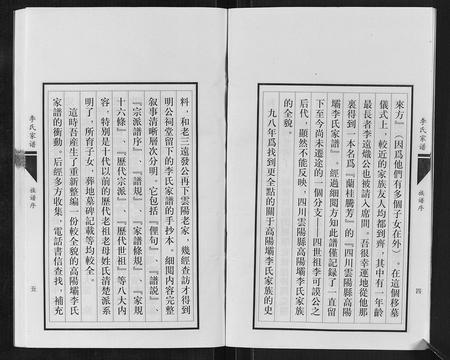 來方』（因爲他們有多個子女在外）。在這個移墓
儀式上，較近的家族友人均都到齊，其中有一年齡
最長者李遠熾公也被請入席間。吾很幸運地從他那
裏得到一本名爲『蘭桂騰芳』的『四川雲陽縣高陽
壩李氏家譜』。經過細閱方知此譜僅記録了一直留
下至今尚未遷途的一個分支——四世祖李可謨公之
后代，顯然不能反映，四川雲陽縣高陽壩李氏家族
的全貌。
九八年爲找到更全點的關于高陽壩李氏家族的史
李氏家譜
族譜序
四
料，和老三遠發公再下雲陽老家，幾經查訪才得到
明公祠堂留下的李氏家譜的手抄本。細閱内容完整
叙事清晰層次分明。它包括『俚句』、『譜説』、
『宗派譜序』、『譜規』、『家譜條規』、『家規
十六條』、『歷代宗派』、『歷代世祖』等八大内
容，特别是十代以前的歷代老祖老母姓氏清楚派系
明了，所育子女，葬地墓碑記載等均較全。
這時吾産生了重新整編一份較全貌的高陽壩李氏
家譜的衝動。后經多方收集，電話書信查找，補充
李氏家譜
族譜序
五